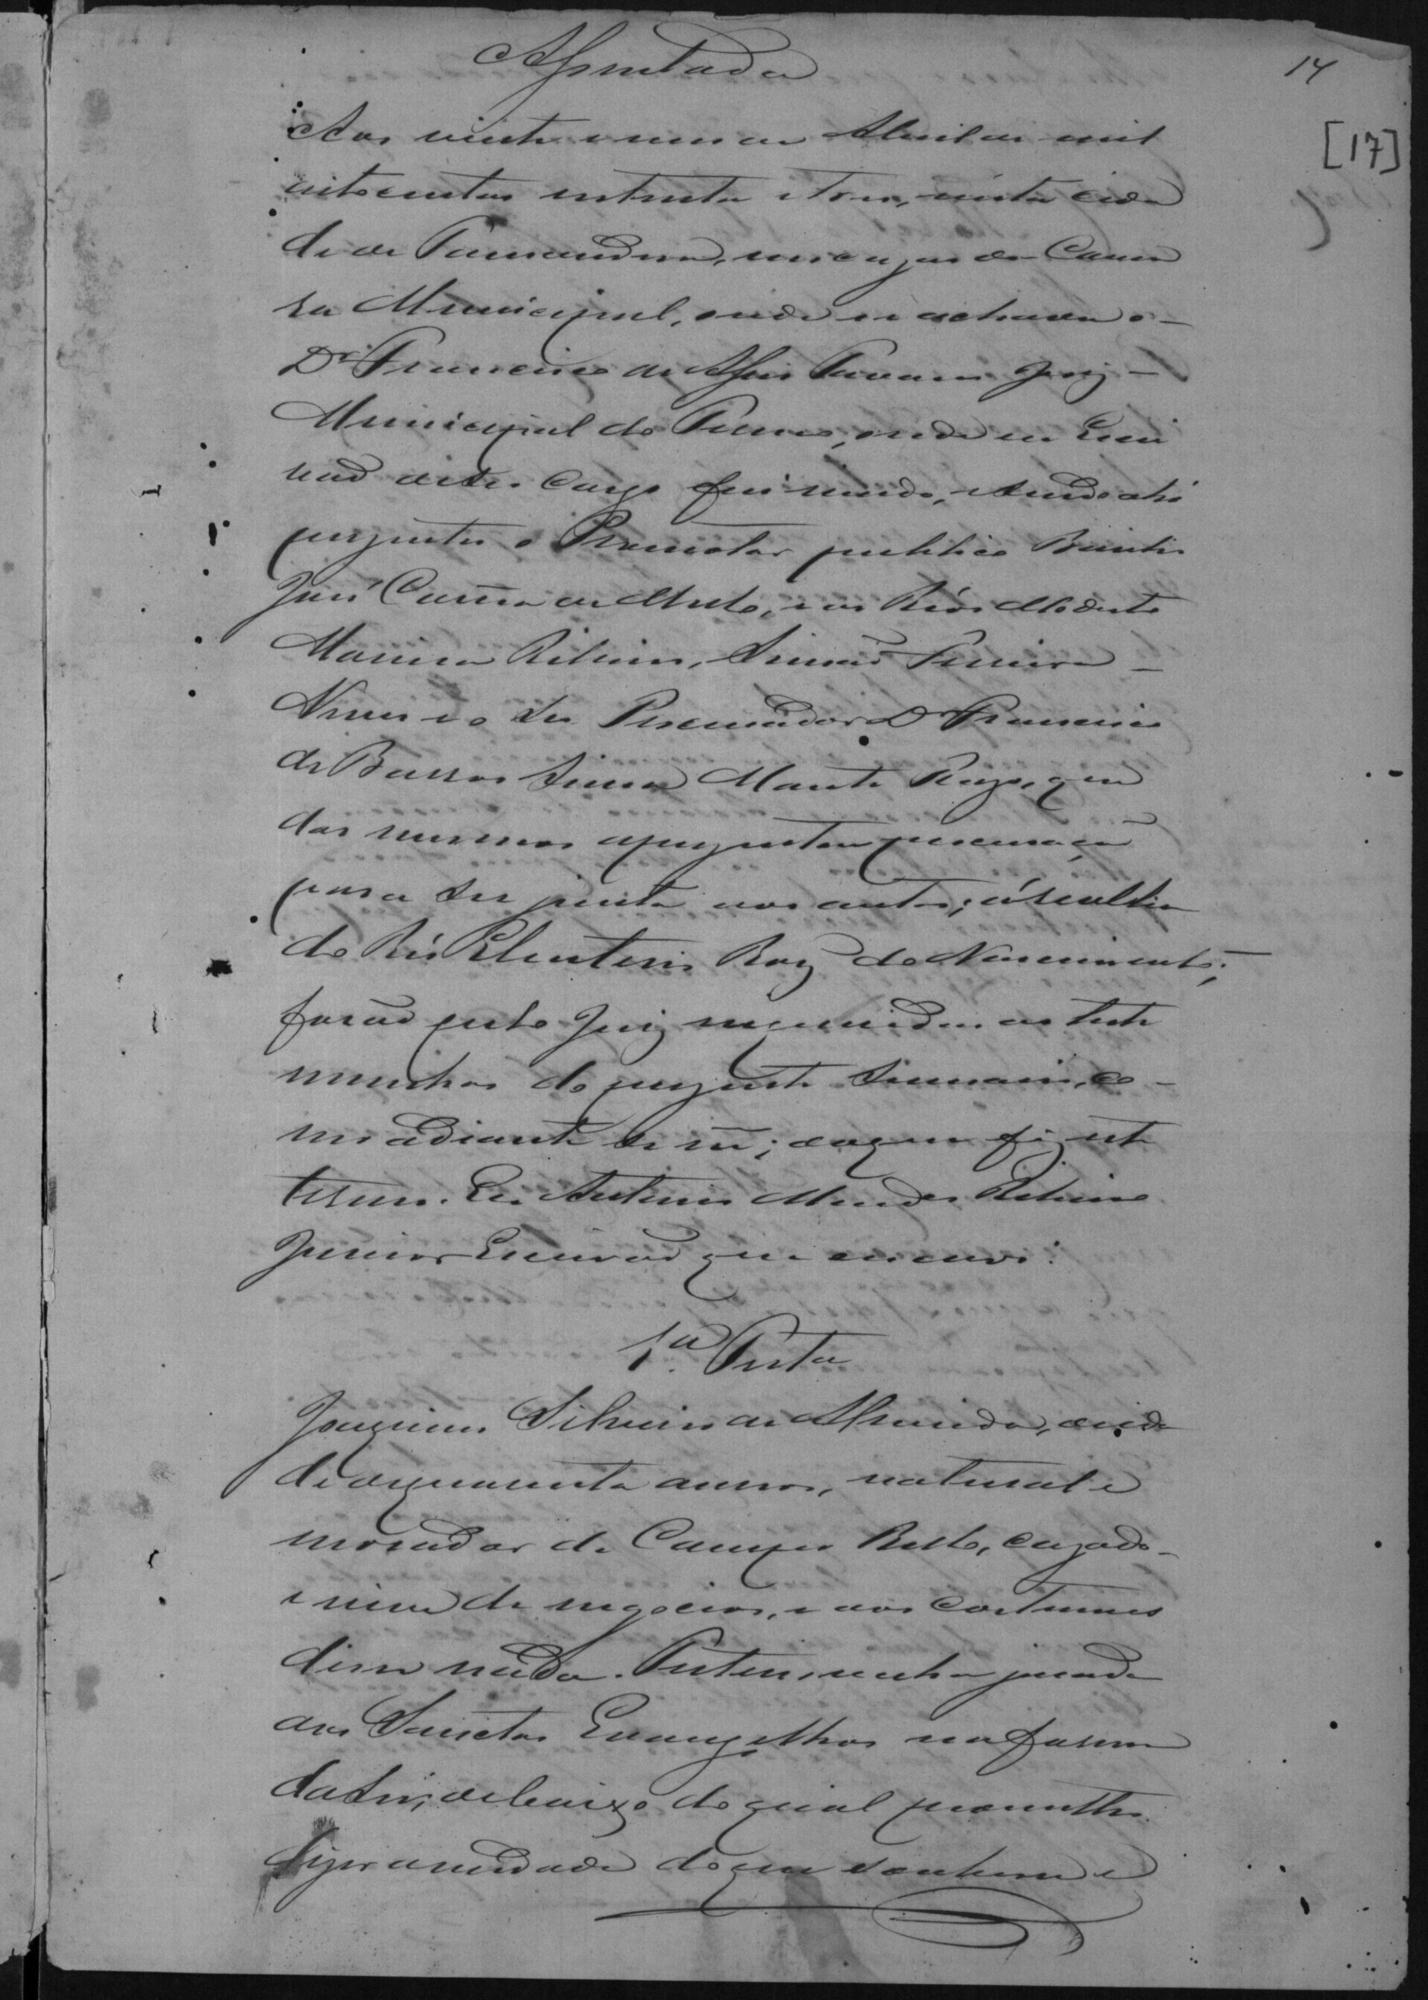 Assentada
14
[17]
Aos vinte e um de Abril de mil
oitocentos setenta e tres, nesta cida
de de Tamanduá, em caza da Cama
ra Municipal, onde se achava o
Dr. Francisco de Assis Tavares Juiz
Municipal do Termo, onde eu Escri
vaõ deste cargo fui vindo, e sendo ahi
prezentes o Promotor publico Bento
José Corrêa de Mello, e os Réos Modesto
Ribeiro, Simaõ Ferreira
Nunes e o seu Procurador Dr. Francisco
de Barros Lima Monte Razo, que
dos mesmos aprezentou procuraçaõ
para ser junta aos autos; á revellia
do Réo Eleuterio Roiz do Nascimento;
foraõ pelo Juiz inqueridas as teste
munhas do prezente Summario, co
mo adiante se vê; do que fiz este
termo. Eu Antonio Mendes Ribeiro
Junior Escrivaõ que escrevi.
1.ª Testa
Joaquim Silverio de Almeida, de ida
de de quarenta annos, natural e
morador de Campo Bello, cazado
e vive de negocios, e aos costumes
disse nada. Testemunha jurada
aos Sanctos Evangelhos na forma
da Lei, debaixo do qual prometteo
dizer a verdade do que soubesse e